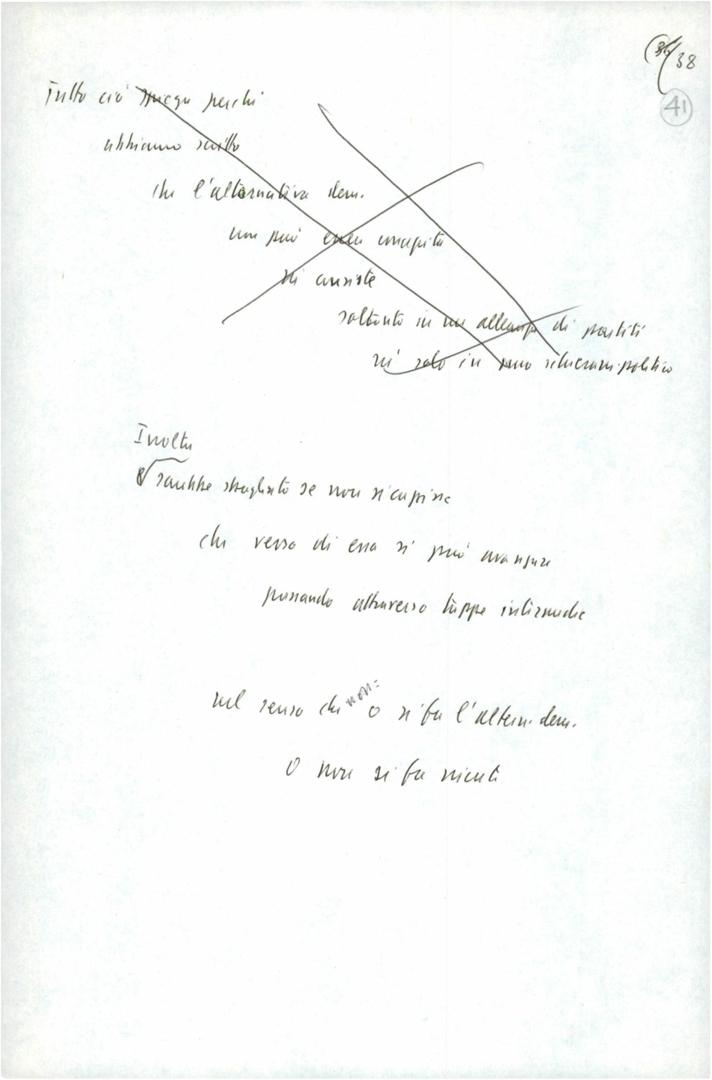 38
41
Tutto ciò spiega perché
abbiamo scritto
che l'alternativa dem.
non può essere concepita
né consiste
soltanto in un di partiti
né solo in uno schieram. politico
Inoltre
sarebbe sbagliato se non si capisse
che verso di essa si può avanzare
passando attraverso tappe intermedie
nel senso che non: o si fa l'altern. dem.
o non si fa niente